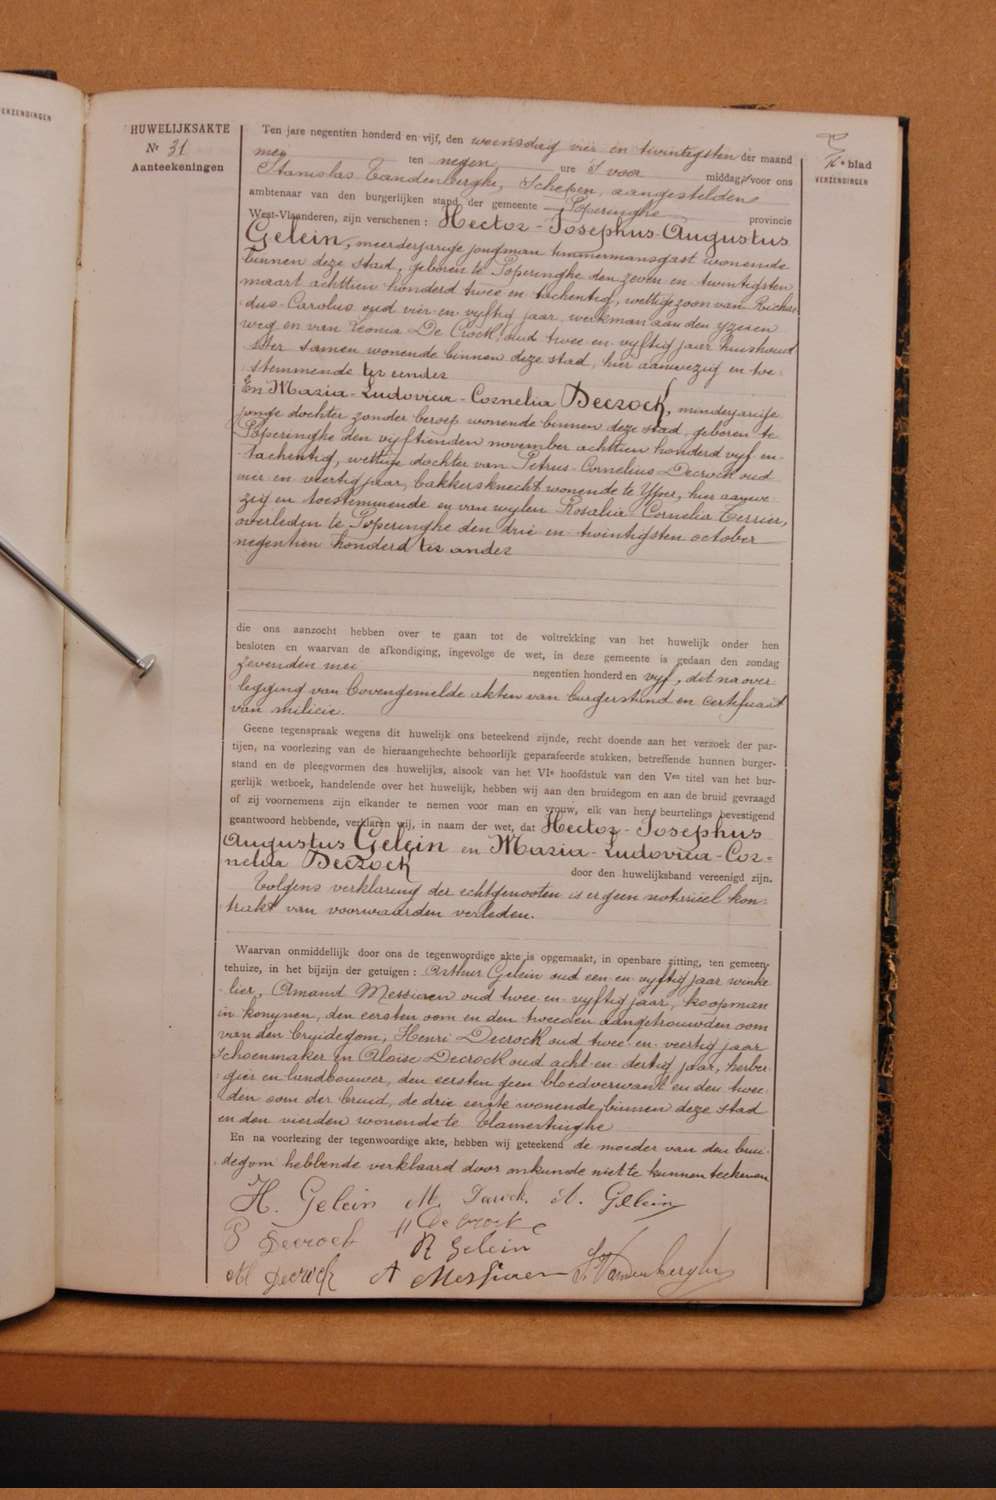 VERZENDINGEN
HUWELIJKSAKTE
Nr 31
Aanteekeningen
blad
VERZENDINGEN
Ten jare negentien honderd en vijf, den woensdag vier en twintigsten der maand
mei ten negen ure 's voor middags, voor ons
Stanislas Vandenberghe, Schepen, aangestelden
ambtenaar van den burgerlijken stand der gemeente Poperinghe provincie
West-Vlaanderen, zijn verschenen : Hector-Josephus-Augustus
Gelein, meerderjarige jongman timmermansgast wonende
binnen deze stad, geboren te Poperinghe den zeven en twintigsten
maart achttien honderd twee en tachentig, wettige zoon van Richar
dus-Carolus oud vier en vyftig jaar werkman aan den yzeren
weg en van Leonia De Crock, oud twee en vyftig jaar huishoud
ster samen wonende binnen deze stad, hier aanwezig en toe
stemmende ter eender
En Maria-Ludovica-Cornelia Decrock, minderjarige
jonge dochter zonder beroep wonende binnen deze stad geboren te
Poperinghe den vijftienden november achttien honderd vyf en
tachentig, wettige dochter van Petrus-Cornelius Decrock oud
vier en veertig jaar, bakkersknecht wonende te Yper, hier aanwe
zig en toestemmende en van wylen Rosalia Cornelia Terrier,
overleden te Poperinghe den drie en twintigsten october
negentien honderd ter ander
die ons aanzocht hebben over te gaan tot de voltrekking van het huwelijk onder hen
besloten en waarvan de afkondiging, ingevolge de wet, in deze gemeente is gedaan den zondag
zevenden mei negentien honderd en vyf, dit na over
legging van bovengemelde akten van burgerstand en certificaat
van milicie.
Geene tegenspraak wegens dit huwelijk ons beteekend zijnde, recht doende aan het verzoek der par-
tijen, na voorlezing van de hieraangehechte behoorlijk geparafeerde stukken, betreffende hunnen burger-
stand en de pleegvormen des huwelijks, alsook van het VIe hoofdstuk van den Ven titel van het bur-
gerlijk wetboek, handelende over het huwelijk, hebben wij aan den bruidegom en aan de bruid gevraagd
of zij voornemens zijn elkander te nemen voor man en vrouw, elk van hen beurtelings bevestigend
geantwoord hebbende, verklaren wij, in naam der wet, dat Hector-Josephus
Augustus Gelein en Maria-Ludovica-Cor=
nelia Decrock door den huwelijksband vereenigd zijn.
Volgens verklaring der echtgenooten is er geen notariëel kon=
trakt van voorwaarden verleden.
Waarvan onmiddellijk door ons de tegenwoordige akte is opgemaakt, in openbare zitting, ten gemeen-
tehuize, in het bijzijn der getuigen : Arthur Gelein oud een en vyftig jaar winke
lier, Amand Messiaen oud twee en vyftig jaar, koopman
in konynen, den eersten oom en den tweeden aangetrouwden oom
van den bruidegom, Henri Decrock oud twee en veertig jaar
schoenmaker en Aloise Decrock oud acht en dertig jaar, herber
gier en landbouwer, den eersten geen bloedverwant en den twee
den oom der bruid, de drie eerste wonende binnen deze stad
en den vierden wonende te Vlamertinghe
En na voorlezing der tegenwoordige akte, hebben wij geteekend de moeder van den brui
degom hebbende verklaard door onkunde niet te kunnen teekenen
H. Gelein M. Decrock. A. Gelein
P Decrock H Decrock
R Gelein
Al Decrock A Messiaen S. Vandenberghe